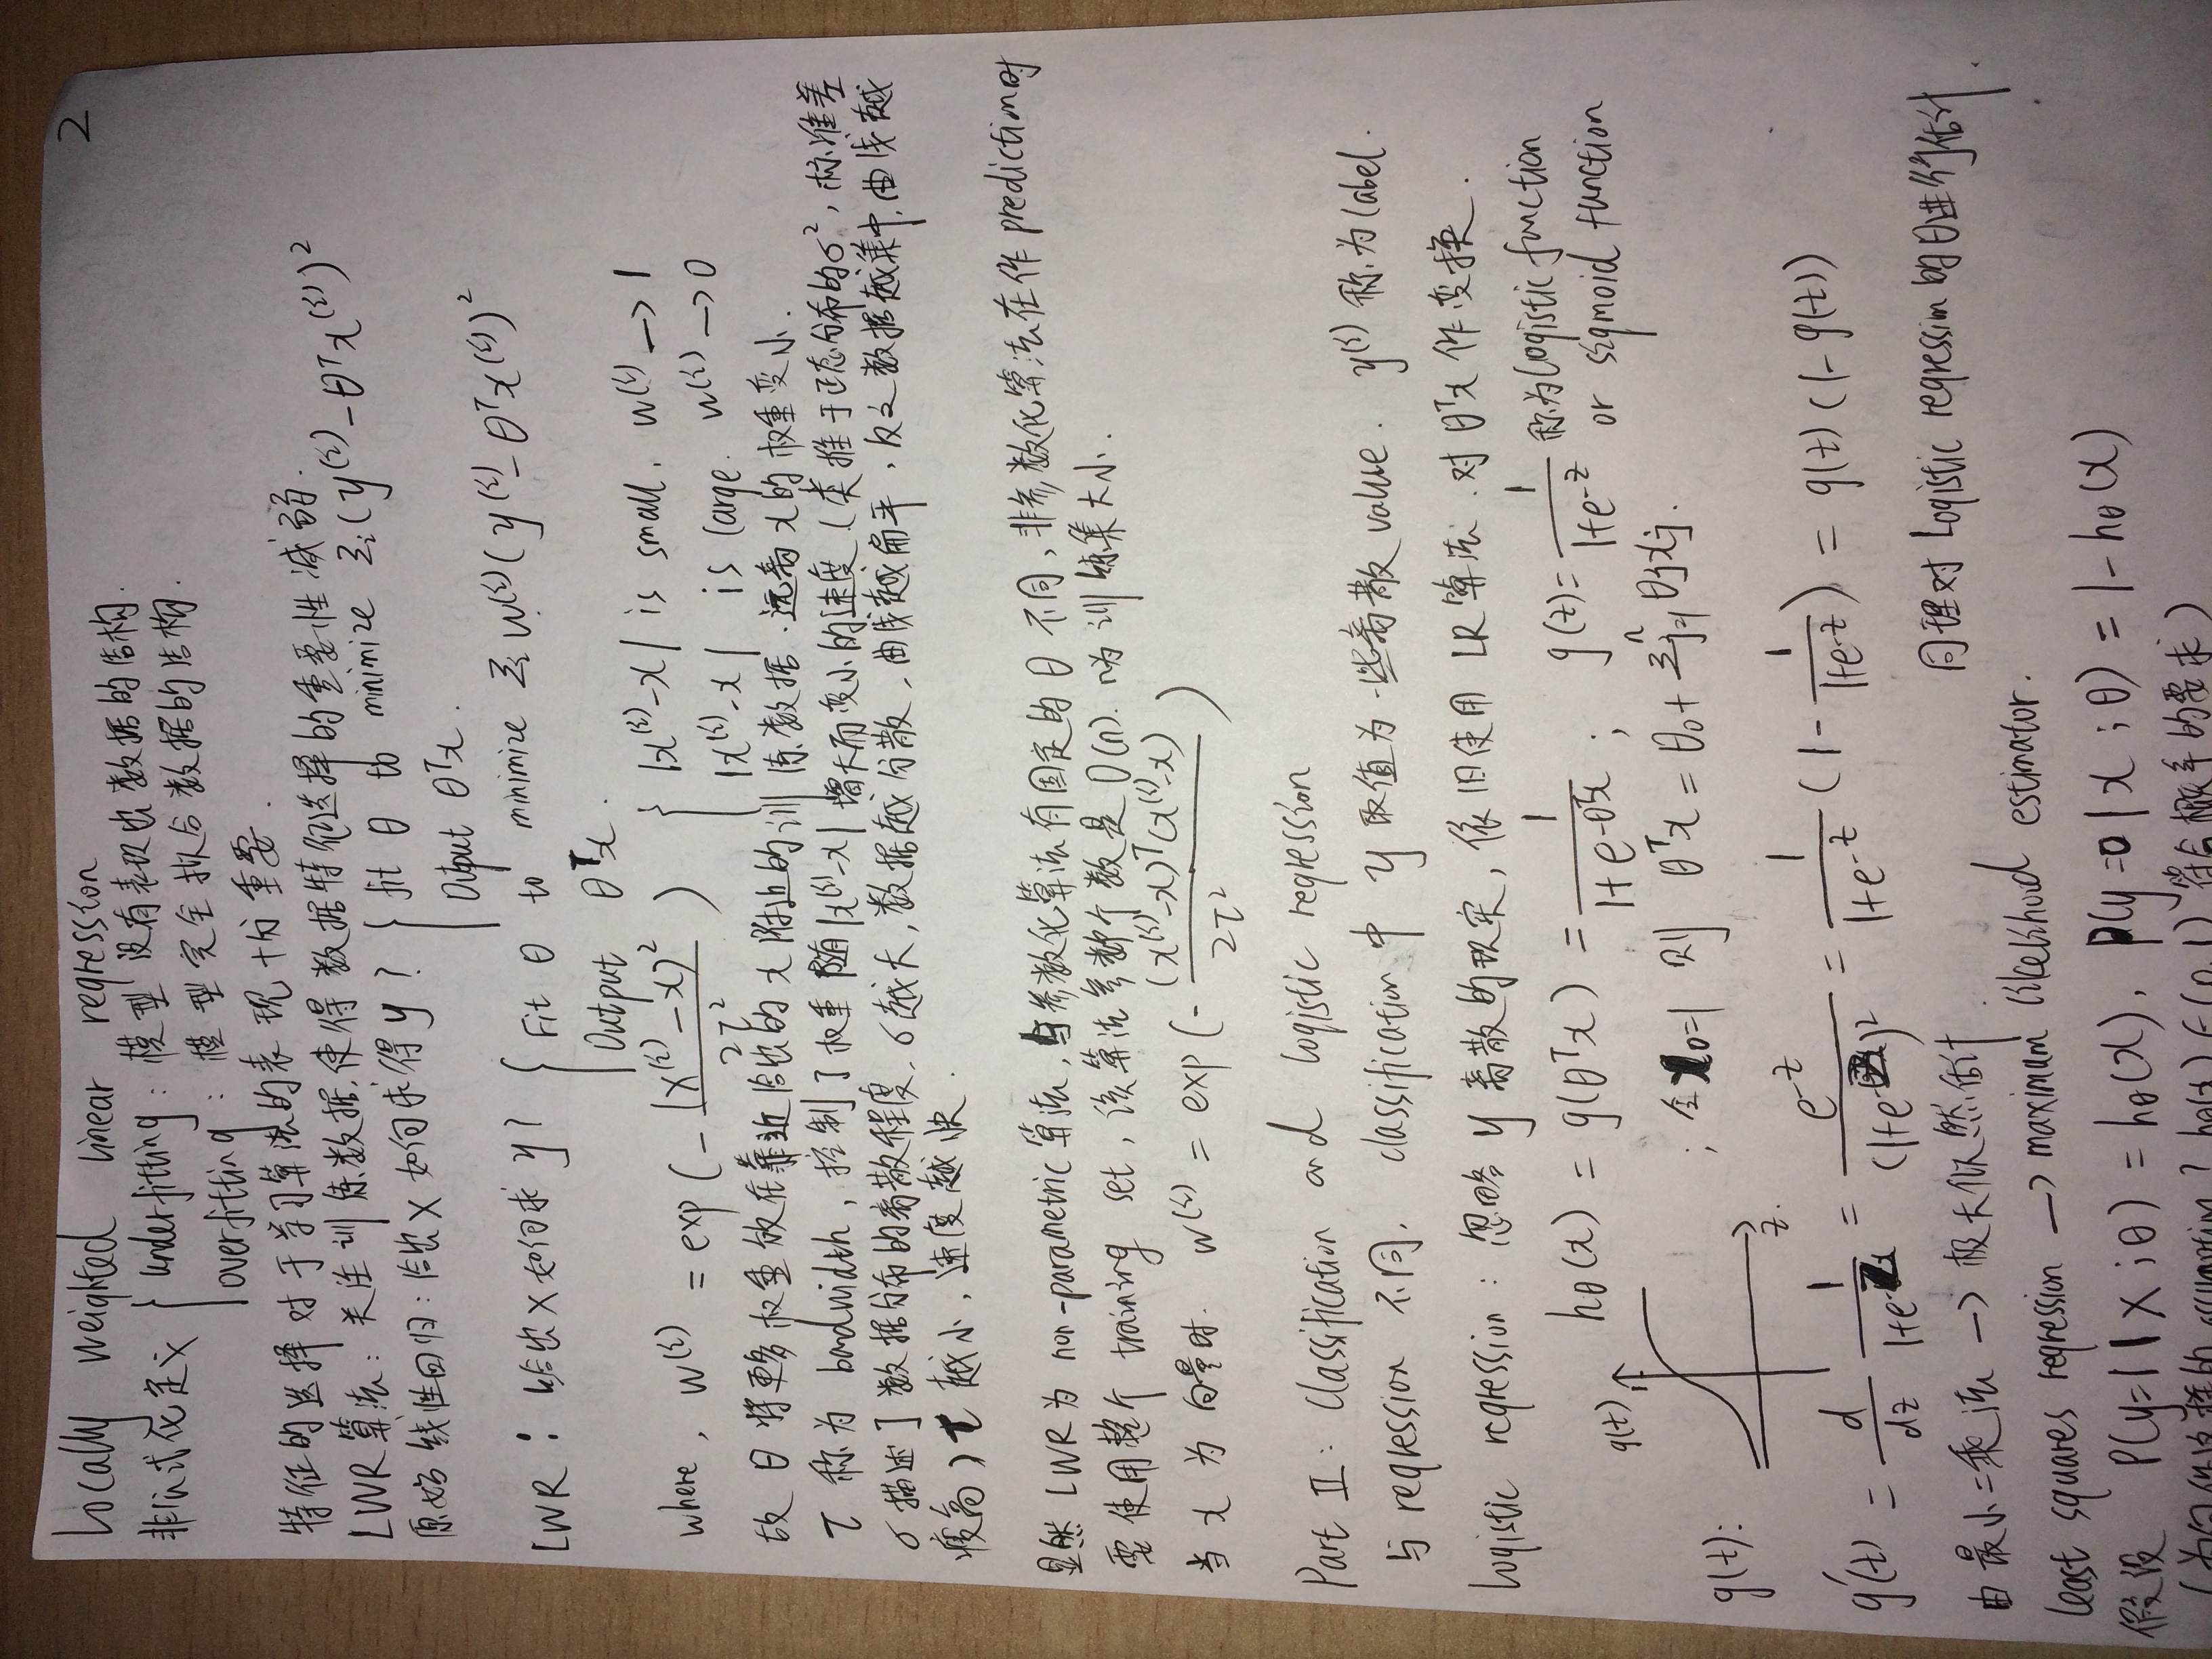 2
Locally weighted linear regression
非公式化定义 { underfitting: 模型没有表现出数据的结构.
overfitting: 模型完全拟合数据的结构.
特征的选择对于学习算法的表现十分重要.
LWR算法: 关注训练数据,使得数据特征选择的重要性减弱.
原始线性回归: 给出x如何求得y? { fit θ to minimize Σᵢ(y⁽ⁱ⁾-θᵀx⁽ⁱ⁾)²
Output θᵀx.
LWR: 给出x如何求y? { Fit θ to minimize Σᵢ w⁽ⁱ⁾(y⁽ⁱ⁾-θᵀx⁽ⁱ⁾)²
Output θᵀx.
where, w⁽ⁱ⁾ = exp(-(x⁽ⁱ⁾-x)²/2τ²) { |x⁽ⁱ⁾-x| is small, w⁽ⁱ⁾→1
|x⁽ⁱ⁾-x| is large. w⁽ⁱ⁾→0
故θ将更多权重放在靠近给出的x附近的训练数据.远离x的权重变小.
τ称为bandwidth, 控制了权重随|x⁽ⁱ⁾-x|增大而变小的速度(类推于正态分布的σ², 标准差
σ描述了数据分布的离散程度, σ越大, 数据越分散, 曲线越扁平, 反之数据越集中, 曲线越
瘦高) τ越小, 速度越快.
显然LWR为non-parametric算法, 与参数化算法有固定的θ不同, 非参数化算法在作prediction时
要使用整个training set, 该算法参数个数是O(n). n为训练集大小.
当x为向量时. w⁽ⁱ⁾ = exp(-(x⁽ⁱ⁾-x)ᵀ(x⁽ⁱ⁾-x)/2τ²)
Part II: Classification and logistic regression
与regression不同, classification中y取值为一些离散value. y⁽ⁱ⁾称为label.
Logistic regression: 忽略y离散的现实, 依旧使用LR算法.对θᵀx作变换.
hθ(x) = g(θᵀx) = 1/(1+e^-θᵀx) ; g(z)=1/(1+e^-z) 称为logistic function
or sigmoid function
g(z) 1
; 令x₀=1 则 θᵀx = θ₀ + Σⁿⱼ₌₁ θⱼxⱼ.
g(z):
z.
g'(z) = d/dz 1/(1+e^-z) = e^-z/(1+e^-z)² = 1/(1+e^-z) (1- 1/(1+e^-z)) = g(z)(1-g(z))
由最小二乘法 → 极大似然估计. 同理对Logistic regression的θ进行估计.
least squares regression → maximum likelihood estimator.
假设 P(y=1|x;θ) = hθ(x), P(y=0|x;θ) = 1-hθ(x)
(为何作这样的assumption? hθ(x)∈(0,1) 符合概率的要求)